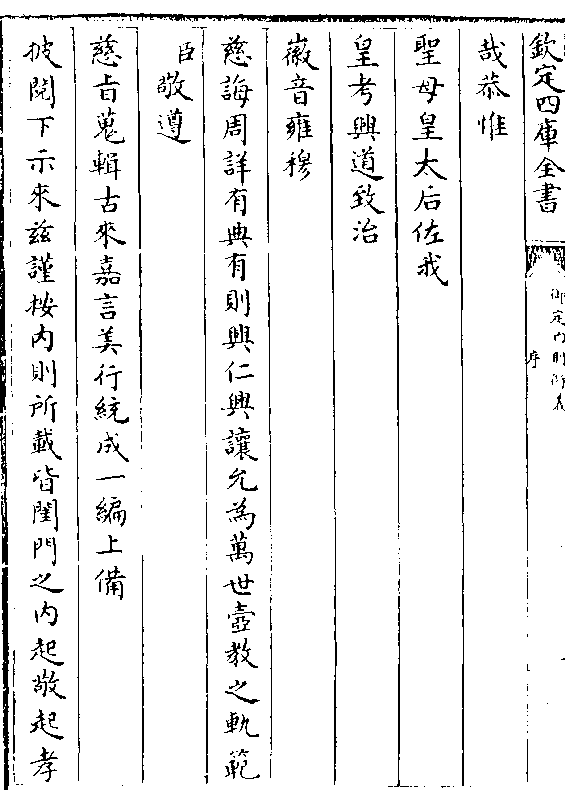 欽定四庫全書
御定內則衍義
序
哉恭惟
聖母皇太后佐我
皇考興道致治
徽音雍穆
慈誨周詳有典有則興仁興讓允為萬世壼教之軌範
臣敬遵
慈旨蒐輯古來嘉言美行統成一編上備
披閱下示來兹謹按內則所載皆閨門之內起敬起孝